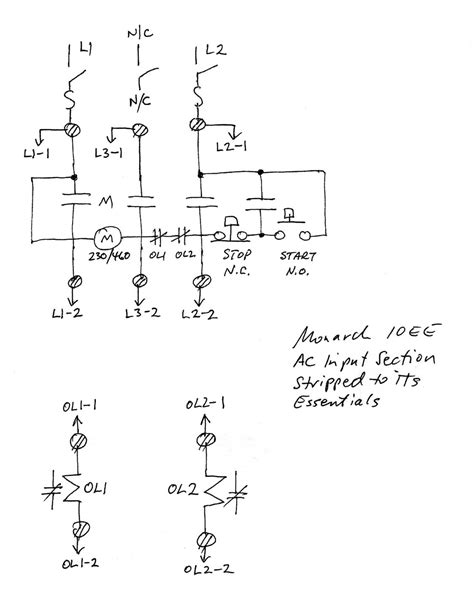 L1
N/C
L2
N/C
L1-1
L3-1
L2-1
M
M
230/460
OL1
OL2
STOP
N.C.
START
N.O.
L1-2
L3-2
L2-2
Monarch 10EE
AC Input Section
Stripped to its
Essentials
OL1-1
OL2-1
OL1
OL2
OL1-2
OL2-2